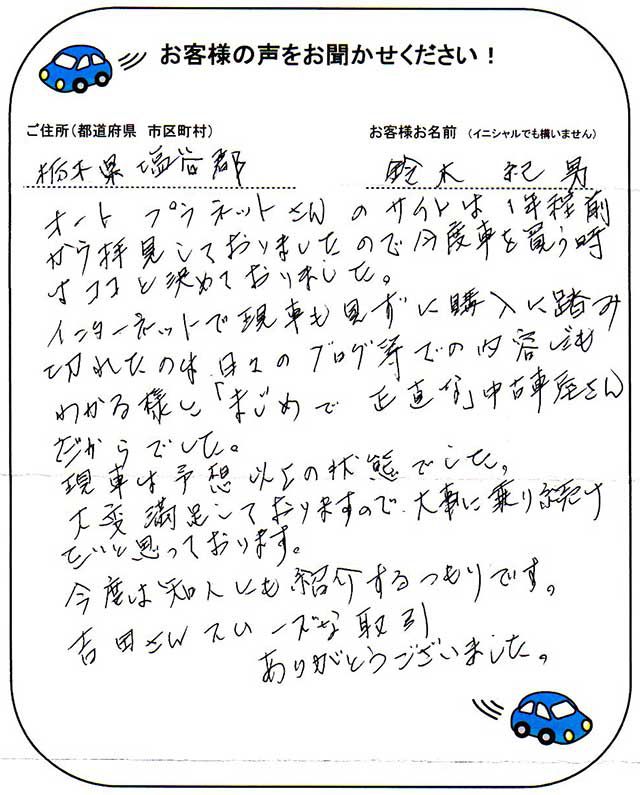 お客様の声をお聞かせください！
ご住所（都道府県　市区町村）　お客様お名前　（イニシャルでも構いません）
栃木県塩谷郡　鈴木　紀男
オートプラネットさんのサイトは1年程前
から拝見しておりましたので今度車を買う時
はココと決めておりました。
インターネットで現車も見ずに購入に踏み
切れたのは日々のブログ等での内容にも
わかる様に「まじめで正直な」中古車屋さん
だからでした。
現車は予想以上の状態でした。
大変満足しておりますので、大事に乗り続け
たいと思っております。
今度は知人にも紹介するつもりです。
吉田さんスムーズな取引
ありがとうございました。